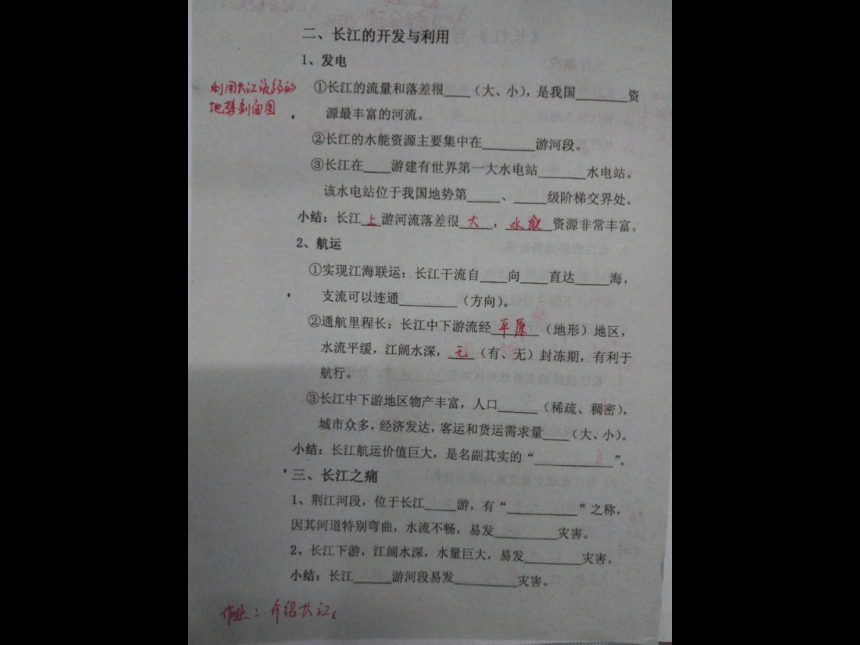 二、长江的开发与利用
1、发电
利用长江流经的
地势剖面图
①长江的流量和落差很____(大、小)，是我国________资
源最丰富的河流。
②长江的水能资源主要集中在________游河段。
③长江在____游建有世界第一大水电站_______水电站。
该水电站位于我国地势第_____、_____级阶梯交界处。
小结：长江上游河流落差很大，水能资源非常丰富。
2、航运
①实现江海联运：长江干流自____向____直达_____海，
支流可以连通_________(方向)。
②通航里程长：长江中下游流经平原(地形)地区，
水流平缓，江阔水深，无(有、无)封冻期，有利于
航行。
③长江中下游地区物产丰富，人口______(稀疏、稠密)，
城市众多，经济发达，客运和货运需求量____(大、小)。
小结：长江航运价值巨大，是名副其实的“____________”。
三、长江之痛
1、荆江河段，位于长江_____游，有“___________”之称，
因其河道特别弯曲，水流不畅，易发__________灾害。
2、长江下游，江阔水深，水量巨大，易发_________灾害。
小结：长江______游河段易发__________灾害。
作业：介绍长江。